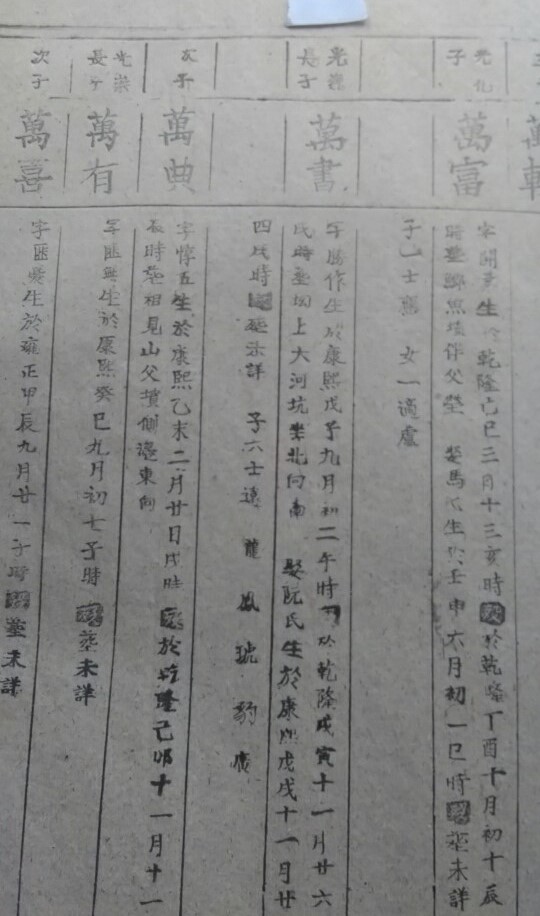 光化
子
萬富
字開[]生於乾隆己巳三月十三亥時歿於乾隆丁酉十月初十辰
時塟鯽魚墩伴父塋 娶馬氏生於壬申六月初一巳時歿塟未詳
子乙士熙 女一適盧
長子
萬書
字勝作生於康熙戊子九月初二午時歿於乾隆戊寅十一月廿六
戌時塟[]上大河坑坐北向南 娶阮氏生於康熙戊戌十一月廿
四戌時歿塟未詳 子六士遠 龍 鳳 琥 豹 廣
次子
萬典
字惇五生於康熙乙未二月廿日戌時歿於乾隆己卯十一月十一
辰時塟相見山父墳側邊東向
光崇
長子
萬有
字匪無生於康熙癸巳九月初七子時歿塟未詳
次子
萬喜
字匪異生於雍正甲辰九月廿一子時歿塟未詳